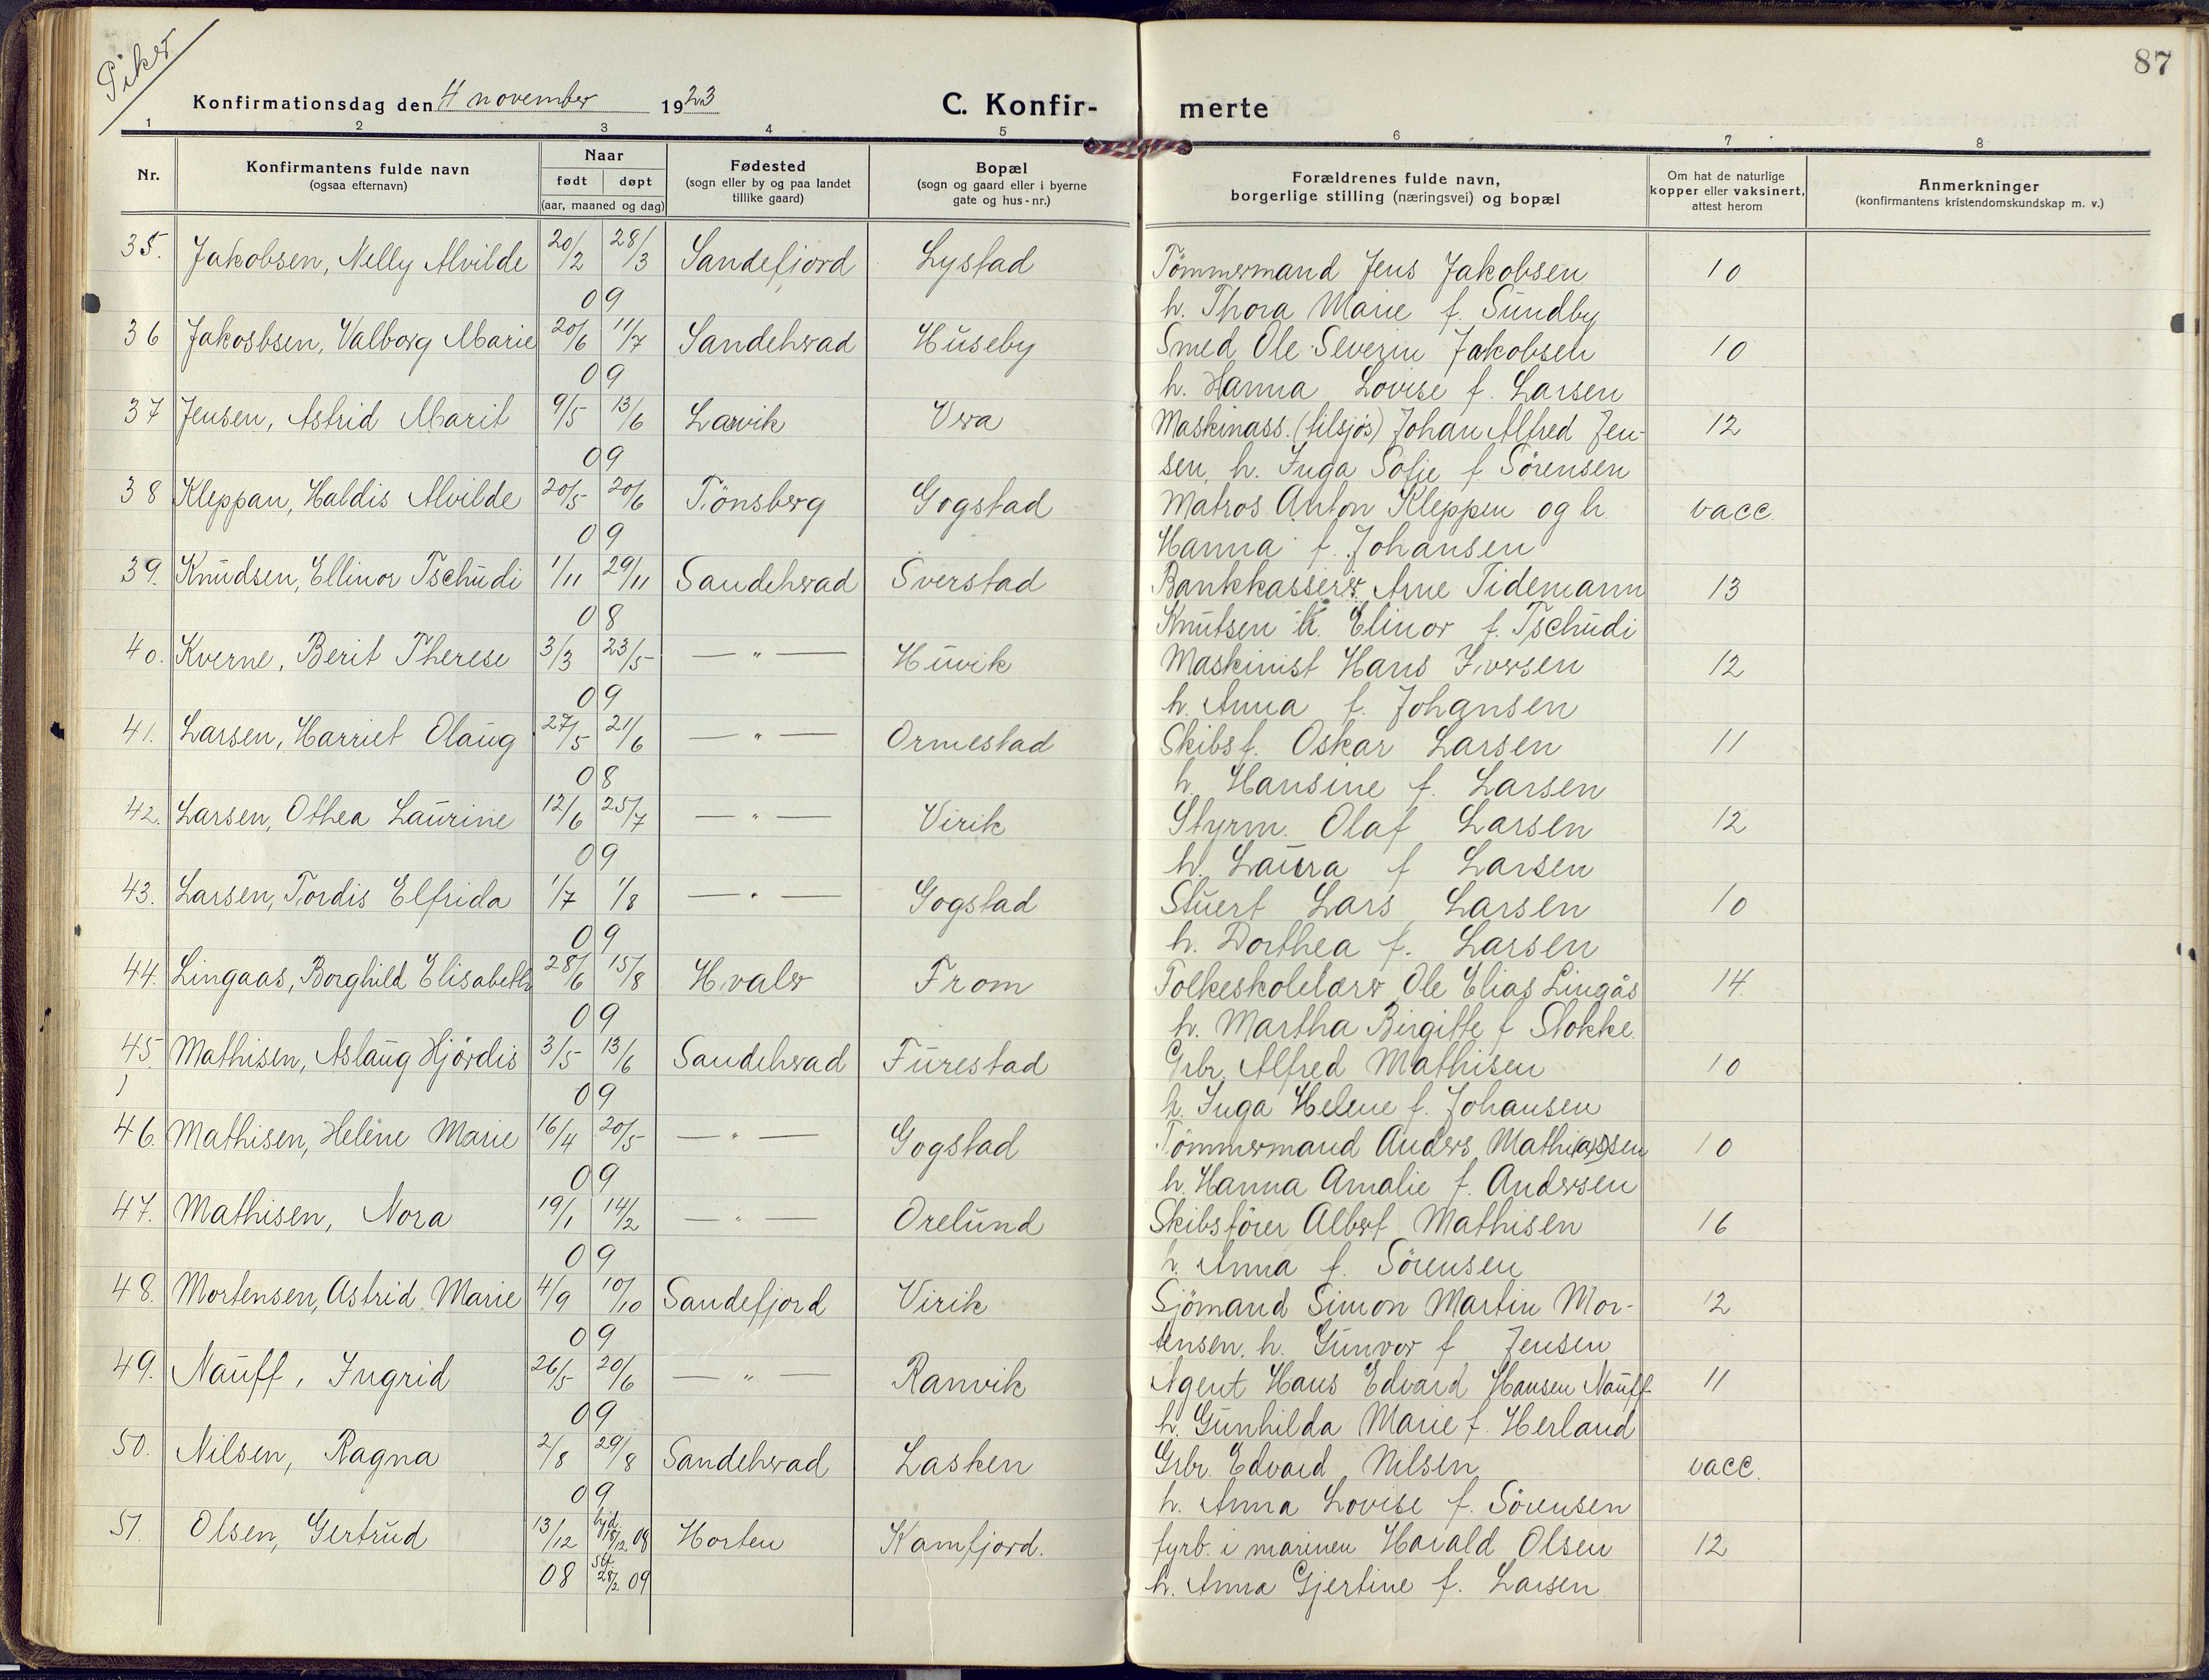 Piker
87
Konfirmationsdag den 4 november 1923
C. Konfir- merte
1 2 3 4 5 6 7 8
Nr.
Konfirmantens fulde navn
(ogsaa efternavn)
Naar
født døpt
(aar, maaned og dag)
Fødested
(sogn eller by og paa landet
tillike gaard)
Bopæl
(sogn og gaard eller i byerne
gate og hus-nr.)
Forældrenes fulde navn,
borgerlige stilling (næringsvei) og bopæl
Om hat de naturlige
kopper eller vaksinert,
attest herom
Anmerkninger
(konfirmantens kristendomskundskap m. v.)
35. Jakobsen, Nelly Alvilde 20/2 28/3 Sandefjord Lystad Tömmermand Jens Jakobsen 10
09 h. Thora Marie f. Sundby
36 Jakosbsen, Valborg Marie 20/6 11/7 Sandehrad Huseby Smed Ole Severin Jakobsen 10
09 h. Hanna Lovise f. Larsen
37 Jensen, Astrid Marit 9/5 13/6 Larvik Vra Maskinass. (tilsjös) Johan Alfred Jen- 12
09 sen, h. Inga Sofie f Sörensen
38 Kleppan, Haldis Alvilde 20/5 20/6 Tönsberg Gogstad Matros Anton Kleppen og h. vacc.
09 Hanna f. Johansen
39. Knudsen, Ellinor Tschudi 1/11 29/11 Sandehrad Sverstad Bankkasserer Arne Tidemann 13
08 Knutsen h. Elinor f. Tschudi
40. Kverne, Berit Therese 3/3 23/5 — " — Huvik Maskinist Hans Iversen 12
09 h. Anna f. Johansen
41. Larsen, Harriet Olaug 27/5 21/6 — " — Ormestad Skibsf. Oskar Larsen 11
08 h. Hansine f. Larsen
42. Larsen, Othea Laurine 12/6 25/7 — " — Virik Styrm. Olaf Larsen 12
09 h. Laura f Larsen
43. Larsen, Tordis Elfrida 1/7 1/8 — " — Gogstad Stuert Lars Larsen 10
09 h. Dorthea f. Larsen
44. Lingaas, Borghild Elisabeth 28/6 15/8 Hvaler From Folkeskolelærer Ole Elias Lingås 14.
09 h. Martha Birgitte f Stokke.
45. Mathisen, Aslaug Hjördis 3/5 13/6 Sandehrad Furestad Grbr. Alfred Mathisen 10
09 h. Inga Helene f. Johansen
46. Mathisen, Helene Marie 16/4 20/5 — " — Gogstad Tömmermand Anders Mathi(as)sen 10
09 h. Hanna Amalie f. Andersen
47. Mathisen, Nora 19/1 14/2 — " — Orelund Skibsförer Albert Mathisen 16
09 h. Anna f. Sörensen
48. Mortensen, Astrid Marie 4/9 10/10 Sandefjord Virik Sjömand Simon Martin Mor- 12
09 tensen, h. Gunvor f Jensen
49. Nauff, Ingrid 26/5 20/6 — " — Ranvik Agent Hans Edvard Hansen Nauff 11
09 h. Gunhilda Marie f. Herland
50. Nilsen, Ragna 2/8 29/8 Sandehrad Lasken Grbr. Edvard Nilsen vacc.
09 h. Anna Lovise f. Sörensen
51. Olsen, Gertrud 13/12 hjd. 18/12 08 Horten Kamfjord. fyrb. i marinen Harald Olsen 12
08 st. 28/2 09 h. Anna Gjertine f. Larsen.